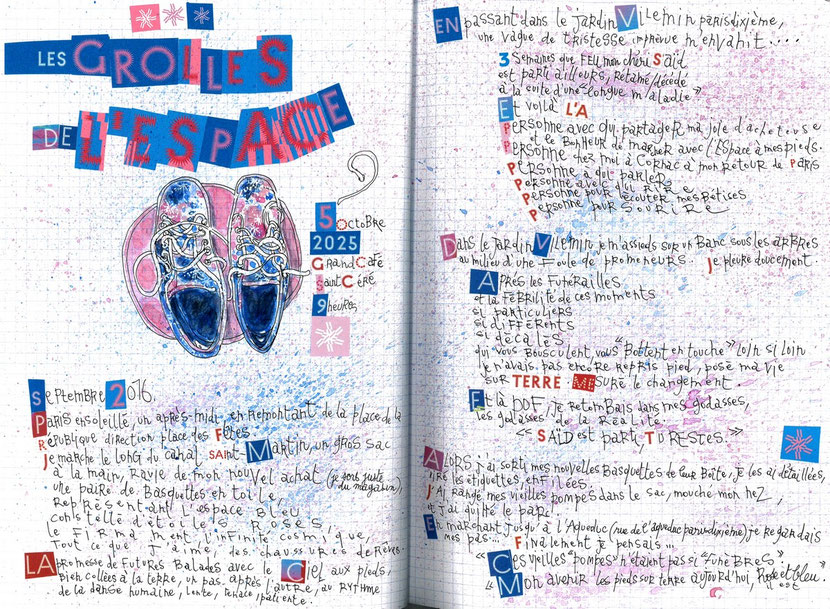 LES GROLLES
DE L'ESPACE
5 octobre
2025
Grand Café
saint Céré
9 heures
septembre 2016,
Paris ensoleillé, un après-midi, en remontant de la place de la
République direction place des Fêtes.
Je marche le long du canal saint-Martin, un gros sac
à la main, ravie de mon nouvel achat (je sors juste
du magasin),
une paire de basquettes en toile,
représentant l'espace bleu,
constellé d'étoiles roses,
le firmament, l'infinité cosmique,
Tout ce que j'aime, des chaussures de rêves.
LA promesse de futures balades avec le Ciel aux pieds,
bien collées à la terre, un pas après l'autre, au rythme
de la danse humaine, lente, tenace, patiente.
EN passant dans le jardin Villemin paris dixième,
une vague de tristesse imprévue m'envahit....
3 semaines que FEU mon chéri Saïd
est parti ailleurs, rétamé/décédé
à la suite d'une "longue maladie"
Et voilà L'A
Personne avec qui partager ma joie d'acheteuse
et le bonheur de marcher avec l'Espace à mes pieds.
Personne chez moi à Cornac à mon retour de Paris
Personne à qui parler
Personne avec qui rire
Personne pour écouter mes bêtises
Personne pour sourire
Dans le jardin Villemin je m'assieds sur un banc sous les arbres
au milieu d'une foule de promeneurs. Je pleure doucement.
Après les funérailles
et la fébrilité de ces moments
si particuliers
si différents
si décalés
qui vous bousculent, vous "bottent en touche" loin si loin
je n'avais pas encore repris pied, posé ma vie
sur TERRE. Mesuré le changement.
Et là POF, je retombais dans mes godasses,
les godasses de la réalité.
« Saïd est parti, Tu restes. »
Alors j'ai sorti mes nouvelles basquettes de leur boîte, je les ai détaillées,
tiré les étiquettes, enfilées.
J'ai rangé mes vieilles pompes dans le sac, mouché mon nez,
et j'ai quitté le parc.
En marchant jusqu'à l'Aqueduc (rue de l'aqueduc paris dixième) je regardais
mes pas... Finalement je pensais...
« Ces vieilles "pompes" n'étaient pas si "funèbres".
« Mon avenir les pieds sur terre aujourd'hui, Rose et bleu.